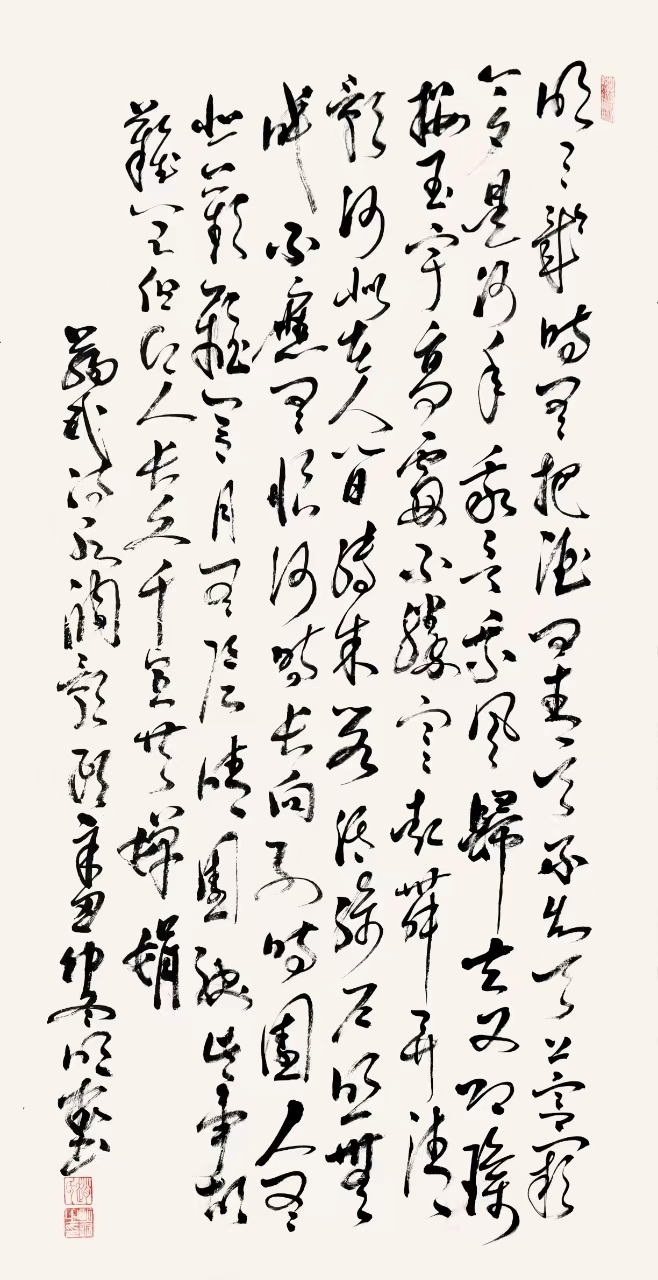 明月幾時有把酒問青天不知天上宮闕
今夕是何年我欲乘風歸去又恐瓊
樓玉宇高處不勝寒起舞弄清
影何似在人間轉朱閣低綺戶照無
眠不應有恨何事長向別時圓人有
悲歡離合月有陰晴圓缺此事古
難全但願人長久千里共嬋娟
蘇軾詩水調歌頭辛丑仲冬明